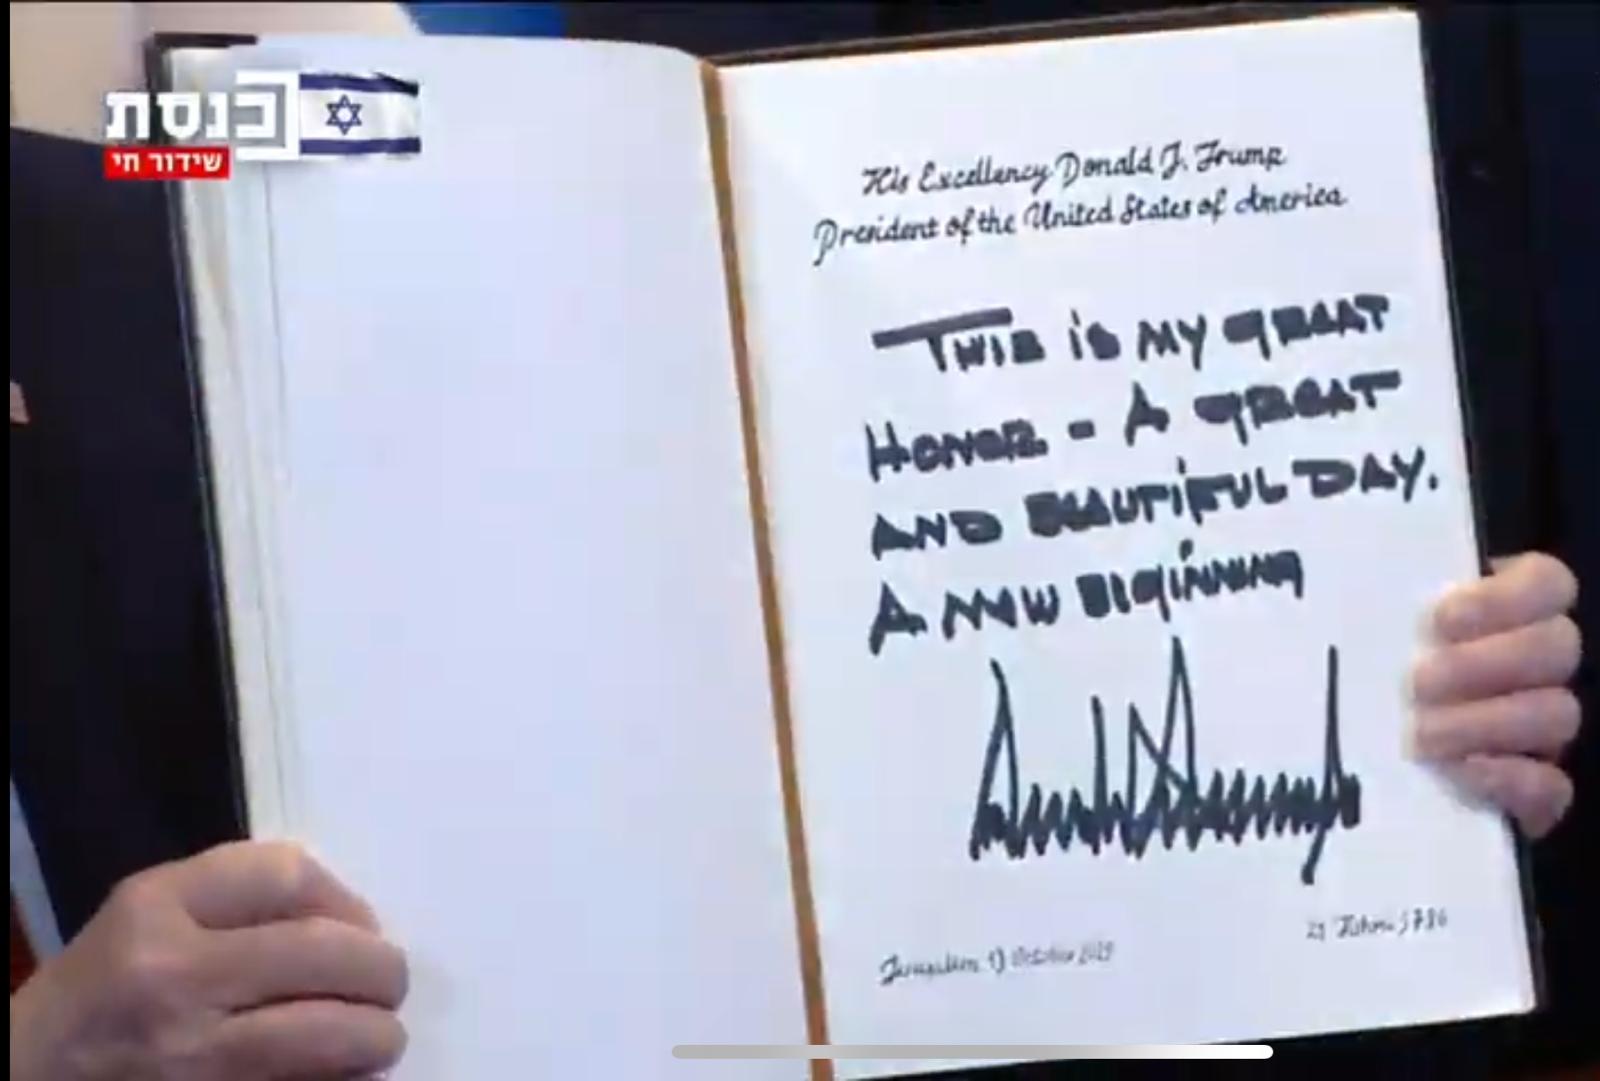 כנסת
שידור חי
His Excellency Donald J. Trump
President of the United States of America
THIS IS MY GREAT
HONOR - A GREAT
AND BEAUTIFUL DAY.
A NEW BEGINNING
Jerusalem 13 October 2025
21 Tishrei 5786